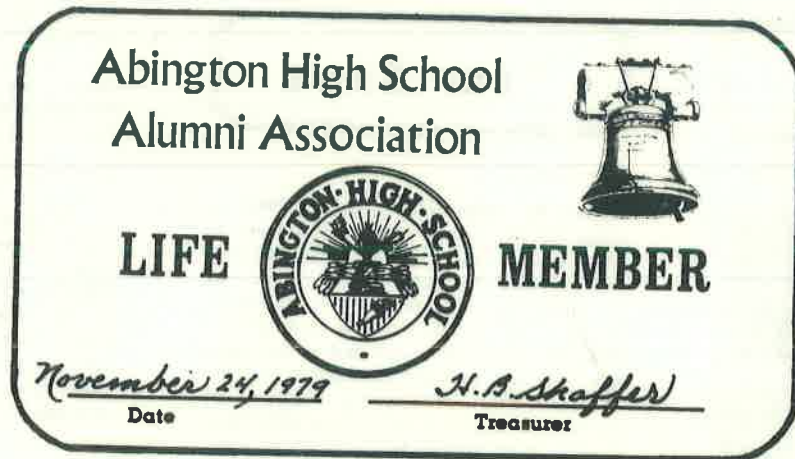 Abington High School
Alumni Association
LIFE
ABINGTON · HIGH · SCHOOL
MEMBER
November 24, 1979
H.B. Shaffer
Date
Treasurer